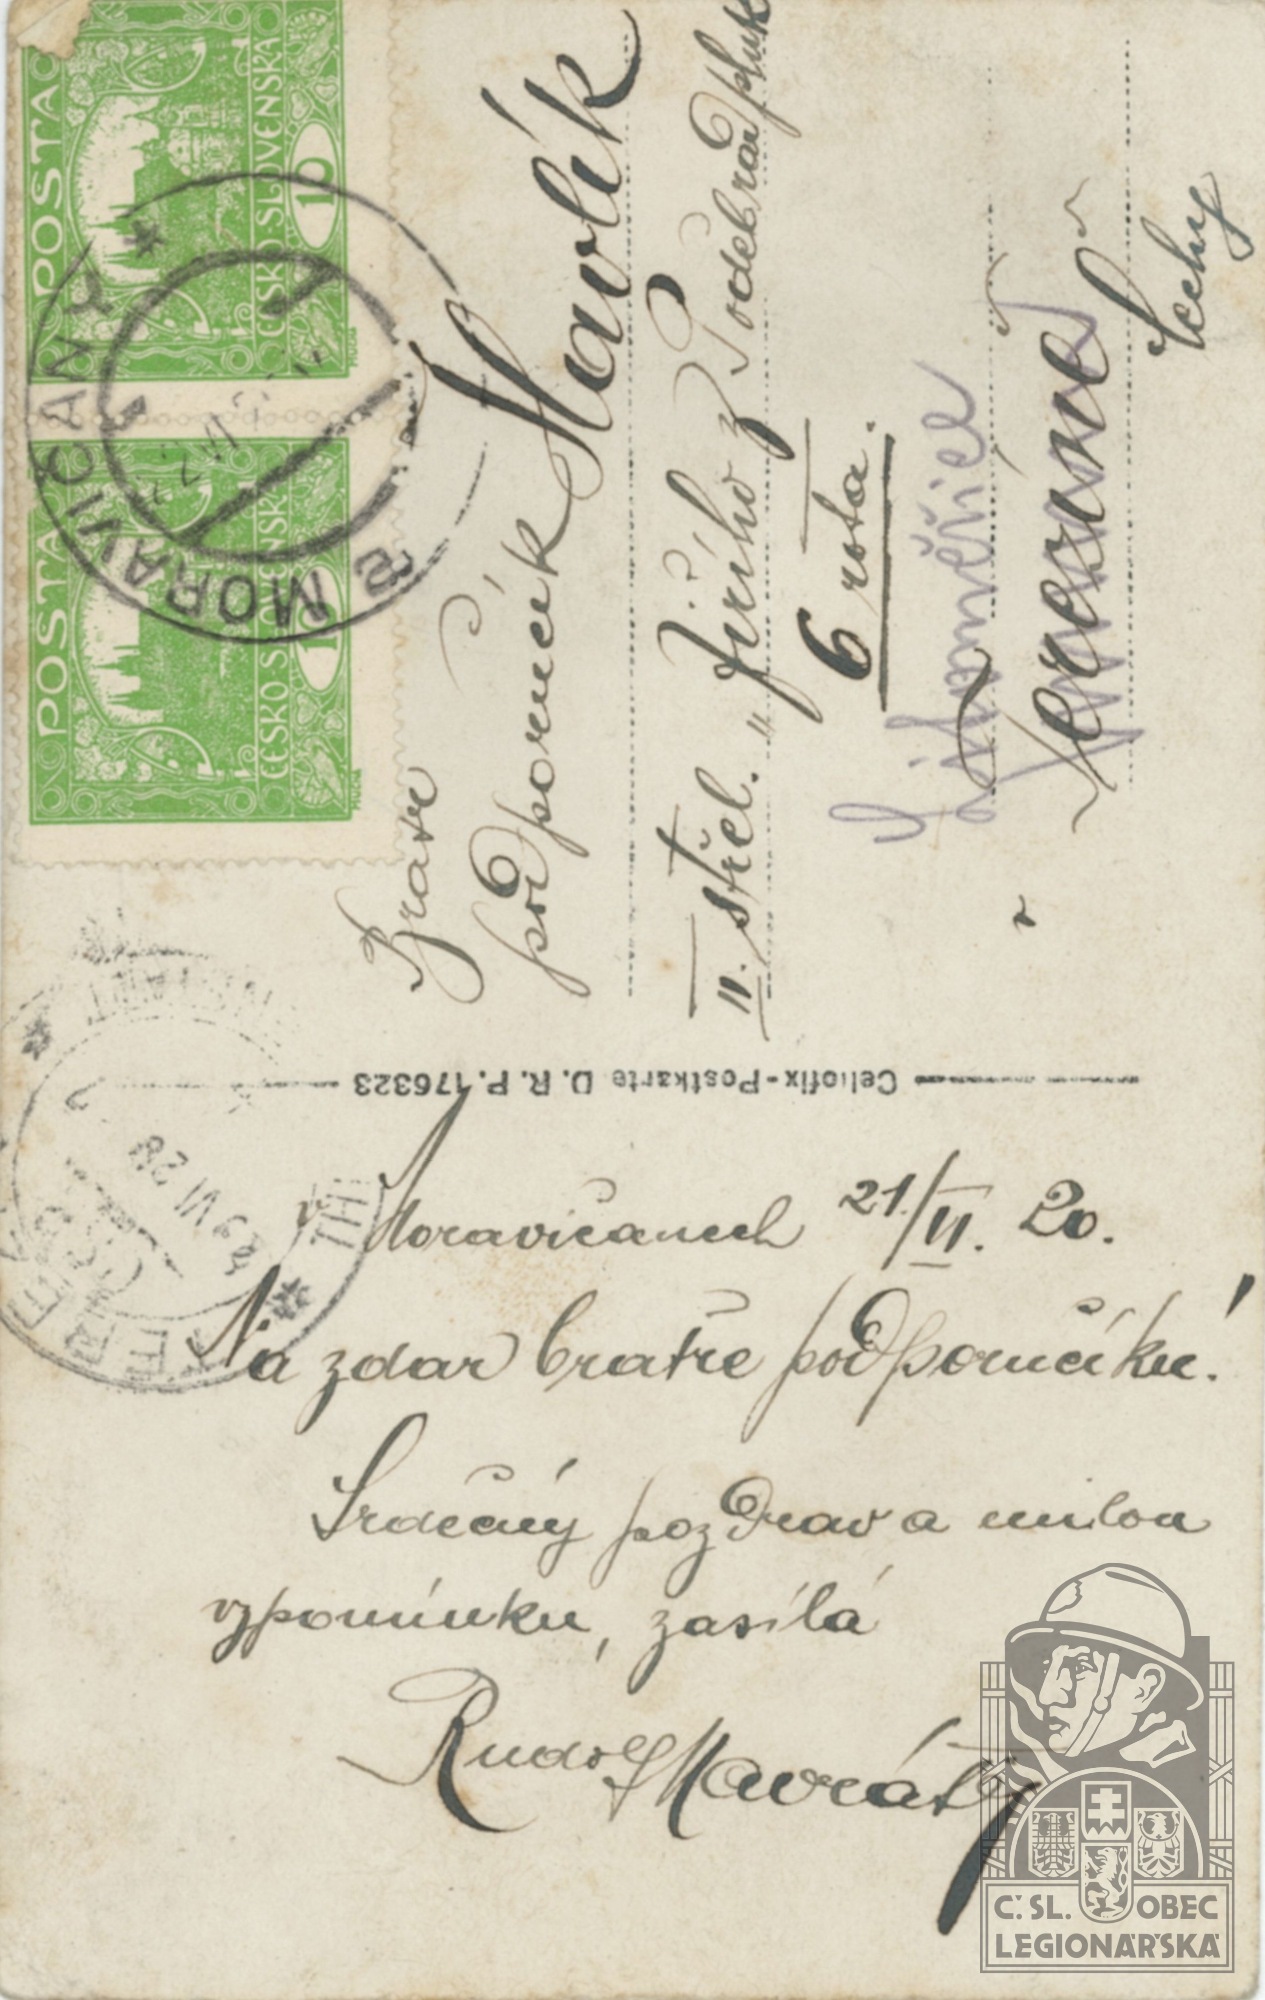 POSTA
ČESKO SLOVENSKÁ
10
MUCHA
POSTA
ČESKO SLOVENSKÁ
10
MUCHA
MORAVIČANY
Bratr
podporučík Havlík
II. střel. "Jiřího z Poděbrad pluk
6 rota.
Litoměřice
v Terezíně
Čechy
Celiofix-Postkarte D. R. P. 176323
V Moravičanech 21/II. 20.
Na zdar bratře podporučíku!
Srdečný pozdrav a milou
vzpomínku, zasílá
Rudolf Navrátil
Č. SL. OBEC
LEGIONÁŘSKÁ